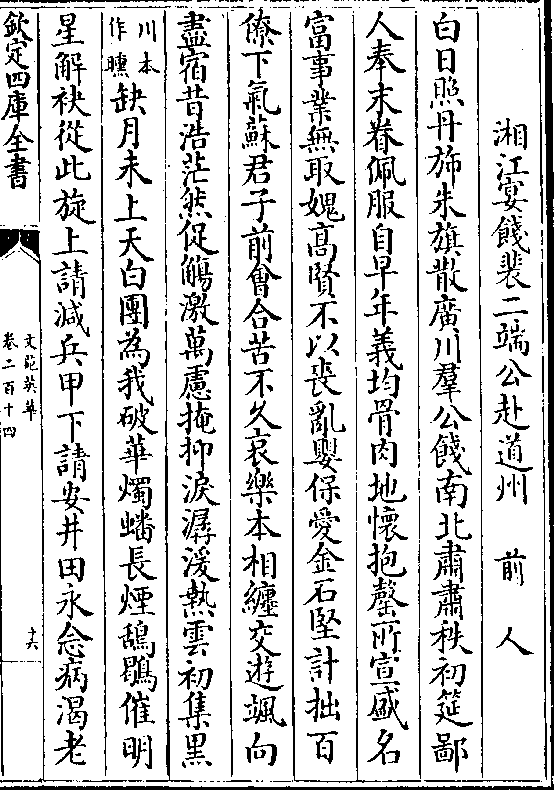 湘江宴餞裴二端公赴道州　前人
白日照丹旆朱旗散廣川羣公餞南北肅肅秩初筵鄙
人奉末眷佩服自早年義均骨肉地懷抱罄所宣盛名
富事業無取媿高賢不以丧亂嬰保愛金石堅計拙百
僚下氣蘇君子前會合苦不久哀樂本相纏交遊颯向
盡宿昔浩茫然促觴激萬慮掩抑淚潺湲熱雲初集黒
川本作曛缺月未上天白團為我破華燭蟠長煙鴰鶡催明
星解袂從此旋上請減兵甲下請安井田永念病渴老
欽定四庫全書
文苑英華
卷二百十四
十六